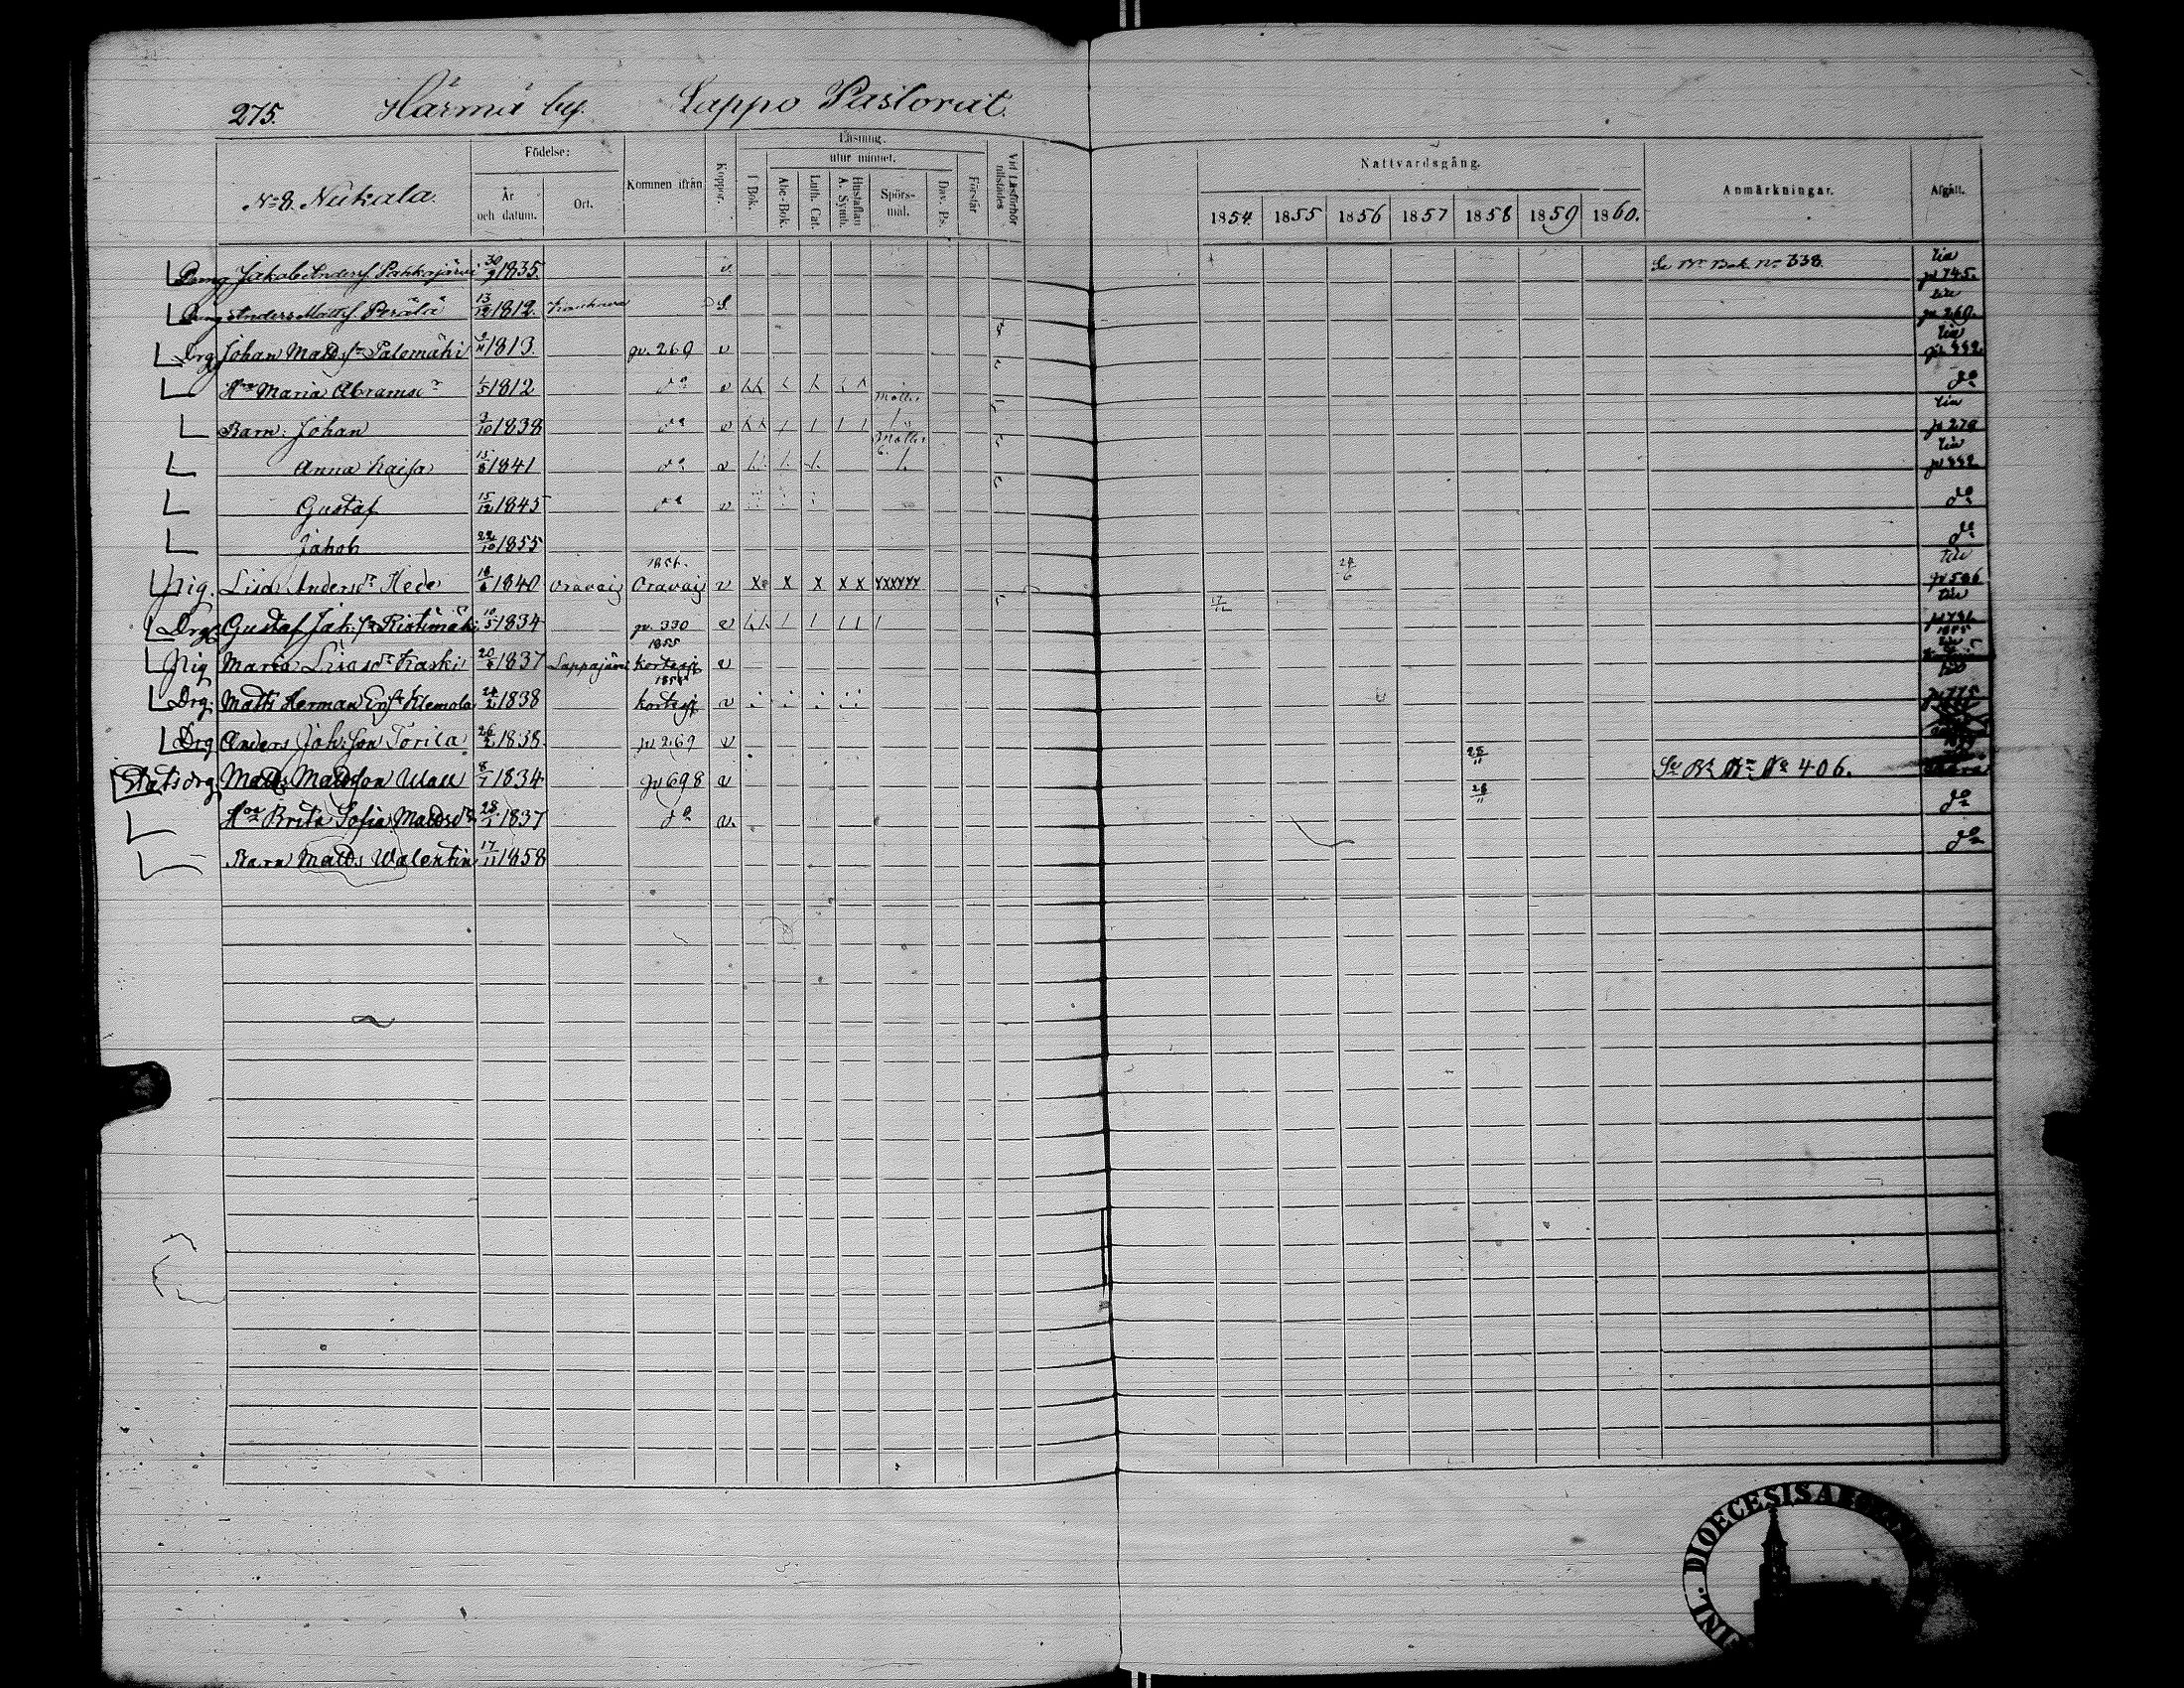 275. Härmä by. Lappo Pastorat.
No 8. Nukala.
Födelse:
År och datum.
Ort.
Kommen ifrån
Koppor.
Läsning.
I Bok.
utur minnet.
Abc-Bok.
Luth. Cat.
Hustaflan A. Symb.
Spörsmål.
Dav. Ps.
Förstår
Vid Läsförhör tillstädes
Nattvardsgång.
1854. 1855 1856 1857 1858 1859 1860.
Anmärkningar.
Afgått.
Jakob Andersf Pahkajärvi 30/9 1835. v. No 338. 745.
Anders Mattsf Perälä 13/12 1812. 269.
Drg Johan Matdsf Palomäki 1813. pv. 269 v
Hu Maria Abramsdr 1/5 1812 do v do
Barn: Johan 3/10 1838 do v
Anna Kaisa 15/8 1841 do v
Gustaf 15/12 1845 do v do
Jakob 22/10 1855 do
Pig. Lisa Andersdr Hede 18/6 1840 Oravais 1856. Oravais v x x x x x xxxxxx 24/6
Drg. Gustaf Jak. sn Ristimäki 10/5 1834 pv. 330 v 17/12
Pig Maria Lisa sdr Kaski 1837 Lappajärvi 1855 kortesj v
Drg. Matts Herman Klemola 24/2 1838 kortesj v
Drg Anders Joh. Son Torila 26/2 1838. pv 269 v
Statsdrg. Matds Matdsson Wall 8/7 1834 pv 698 v 28/11 No 406.
Hu Brita Sofia Matdsdr 1837 do v. 28/11 do
Barn Matds Walentin 17/11 1858 do
DIOECESIS